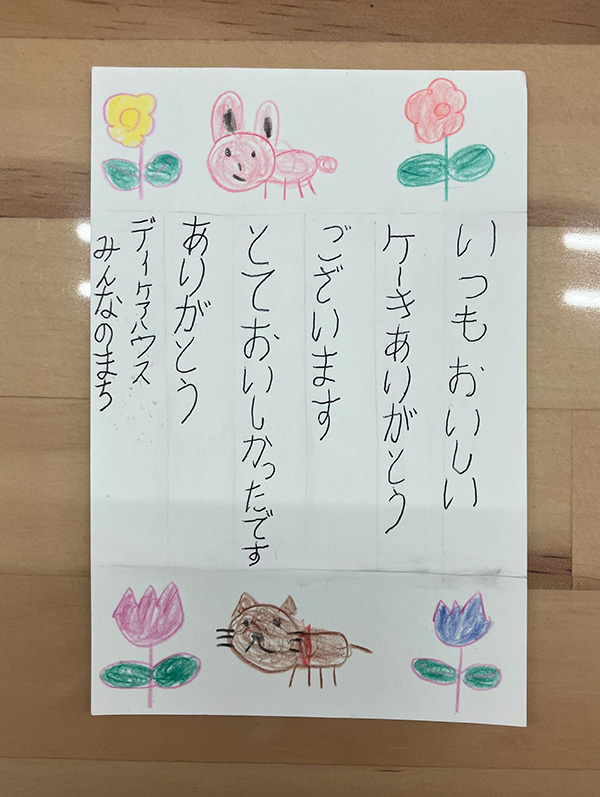 いつもおいしい
ケーきありがとう
ございます
とてもおいしかったです
ありがとう
ディケアハウス
みんなのまち